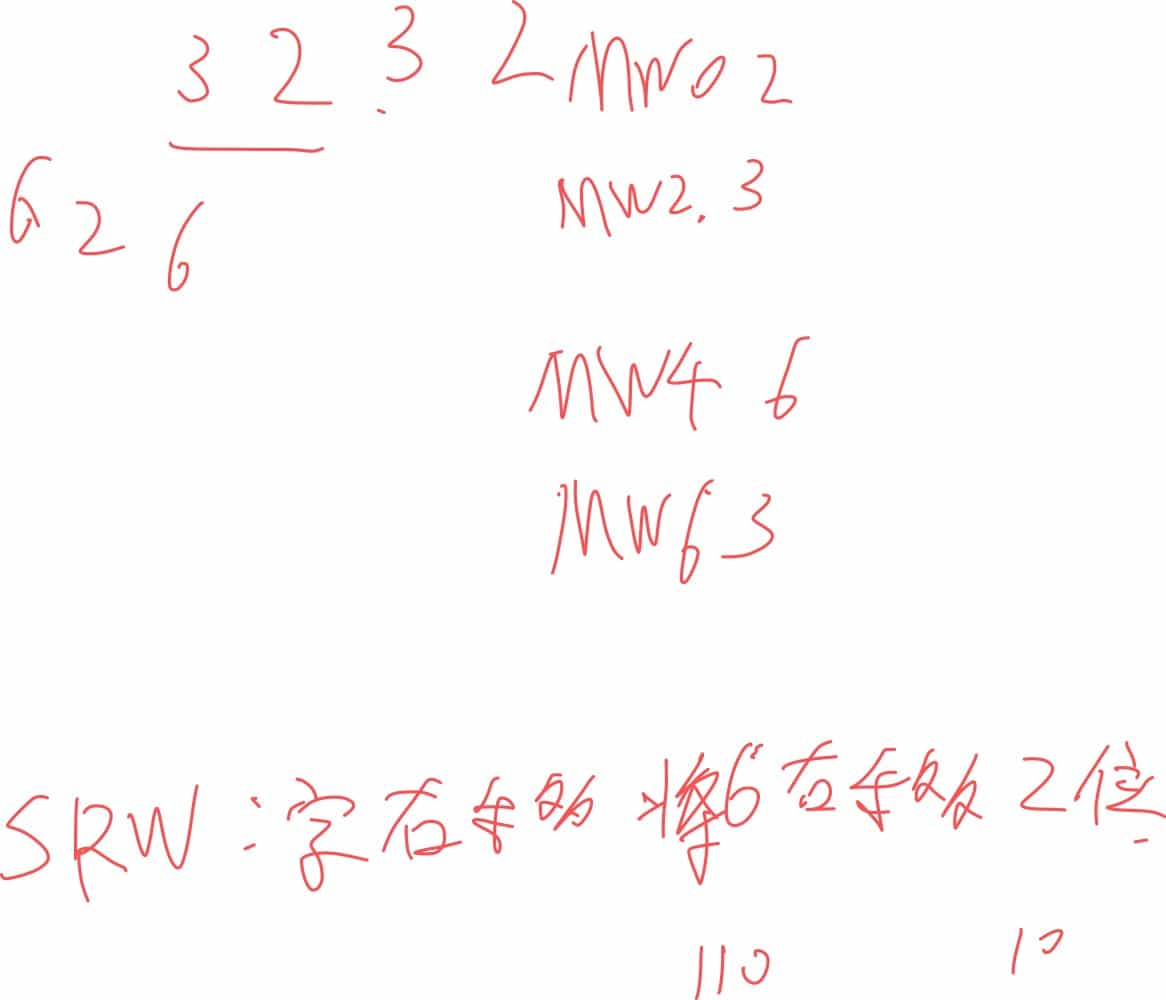 3 2 . 3 2 MW0 2
MW2. 3
6 2 6
MW4 6
MW6 3
SRW:字右移 将6右移 2位
110 10